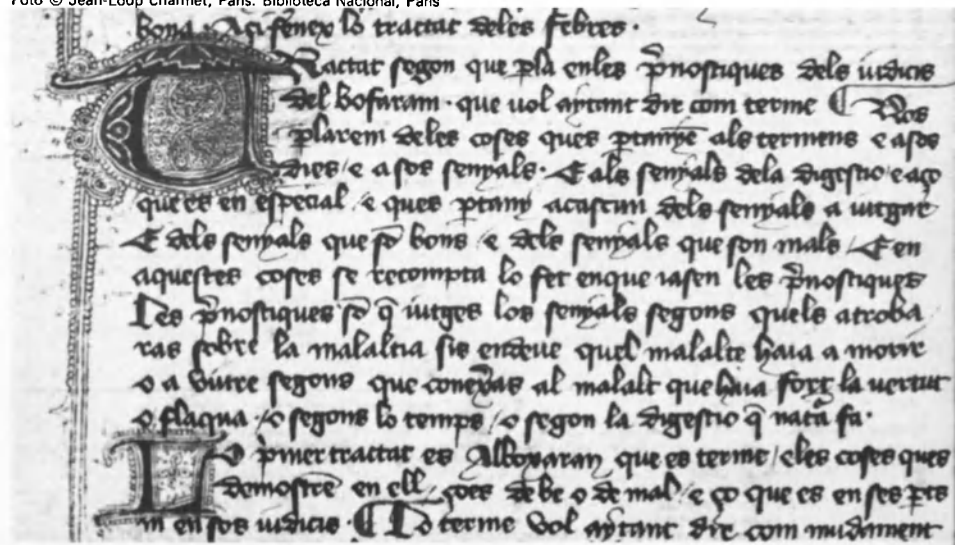 Foto © Jean-Loup Charmet, París. Biblioteca Nacional, París
bona · Aci feneix lo tractat deles febres ·
Tractat segon que p̱la enles p̄nostiques dels iudicis
del bofaram · que uol aytant dir com terme ¶ Nos
p̱larem deles coses ques p̱tanyē als termens e asos
dies / e a sos senyals · E als senyals dela digestio / e aço
que es en especial / e ques p̱tany acascun dels senyals a iutgar
E dels senyals que sō bons / e dels senyals que son mals / E en
aquestes coses se recompta lo fet enque iasen les p̄nostiques
Les p̄nostiques sō q̄ iutges los senyals segons quels atroba
ras sobre la malaltia sis endeue quel malalte haia a morir
o a viure segons que conexͣas al malalt que haia fort la vertut
o flaqua / o segons lo temps / o segon la digestio q̄ natͣa fa ·
Lo pͥmer tractat es Alboxaran que es terme / e les coses ques
demostrē en ell / ço es de be o de mal / e ço que es en ses p̱ts
ni en sos iudicis · ¶ Lo terme vol aytant dir com mudament